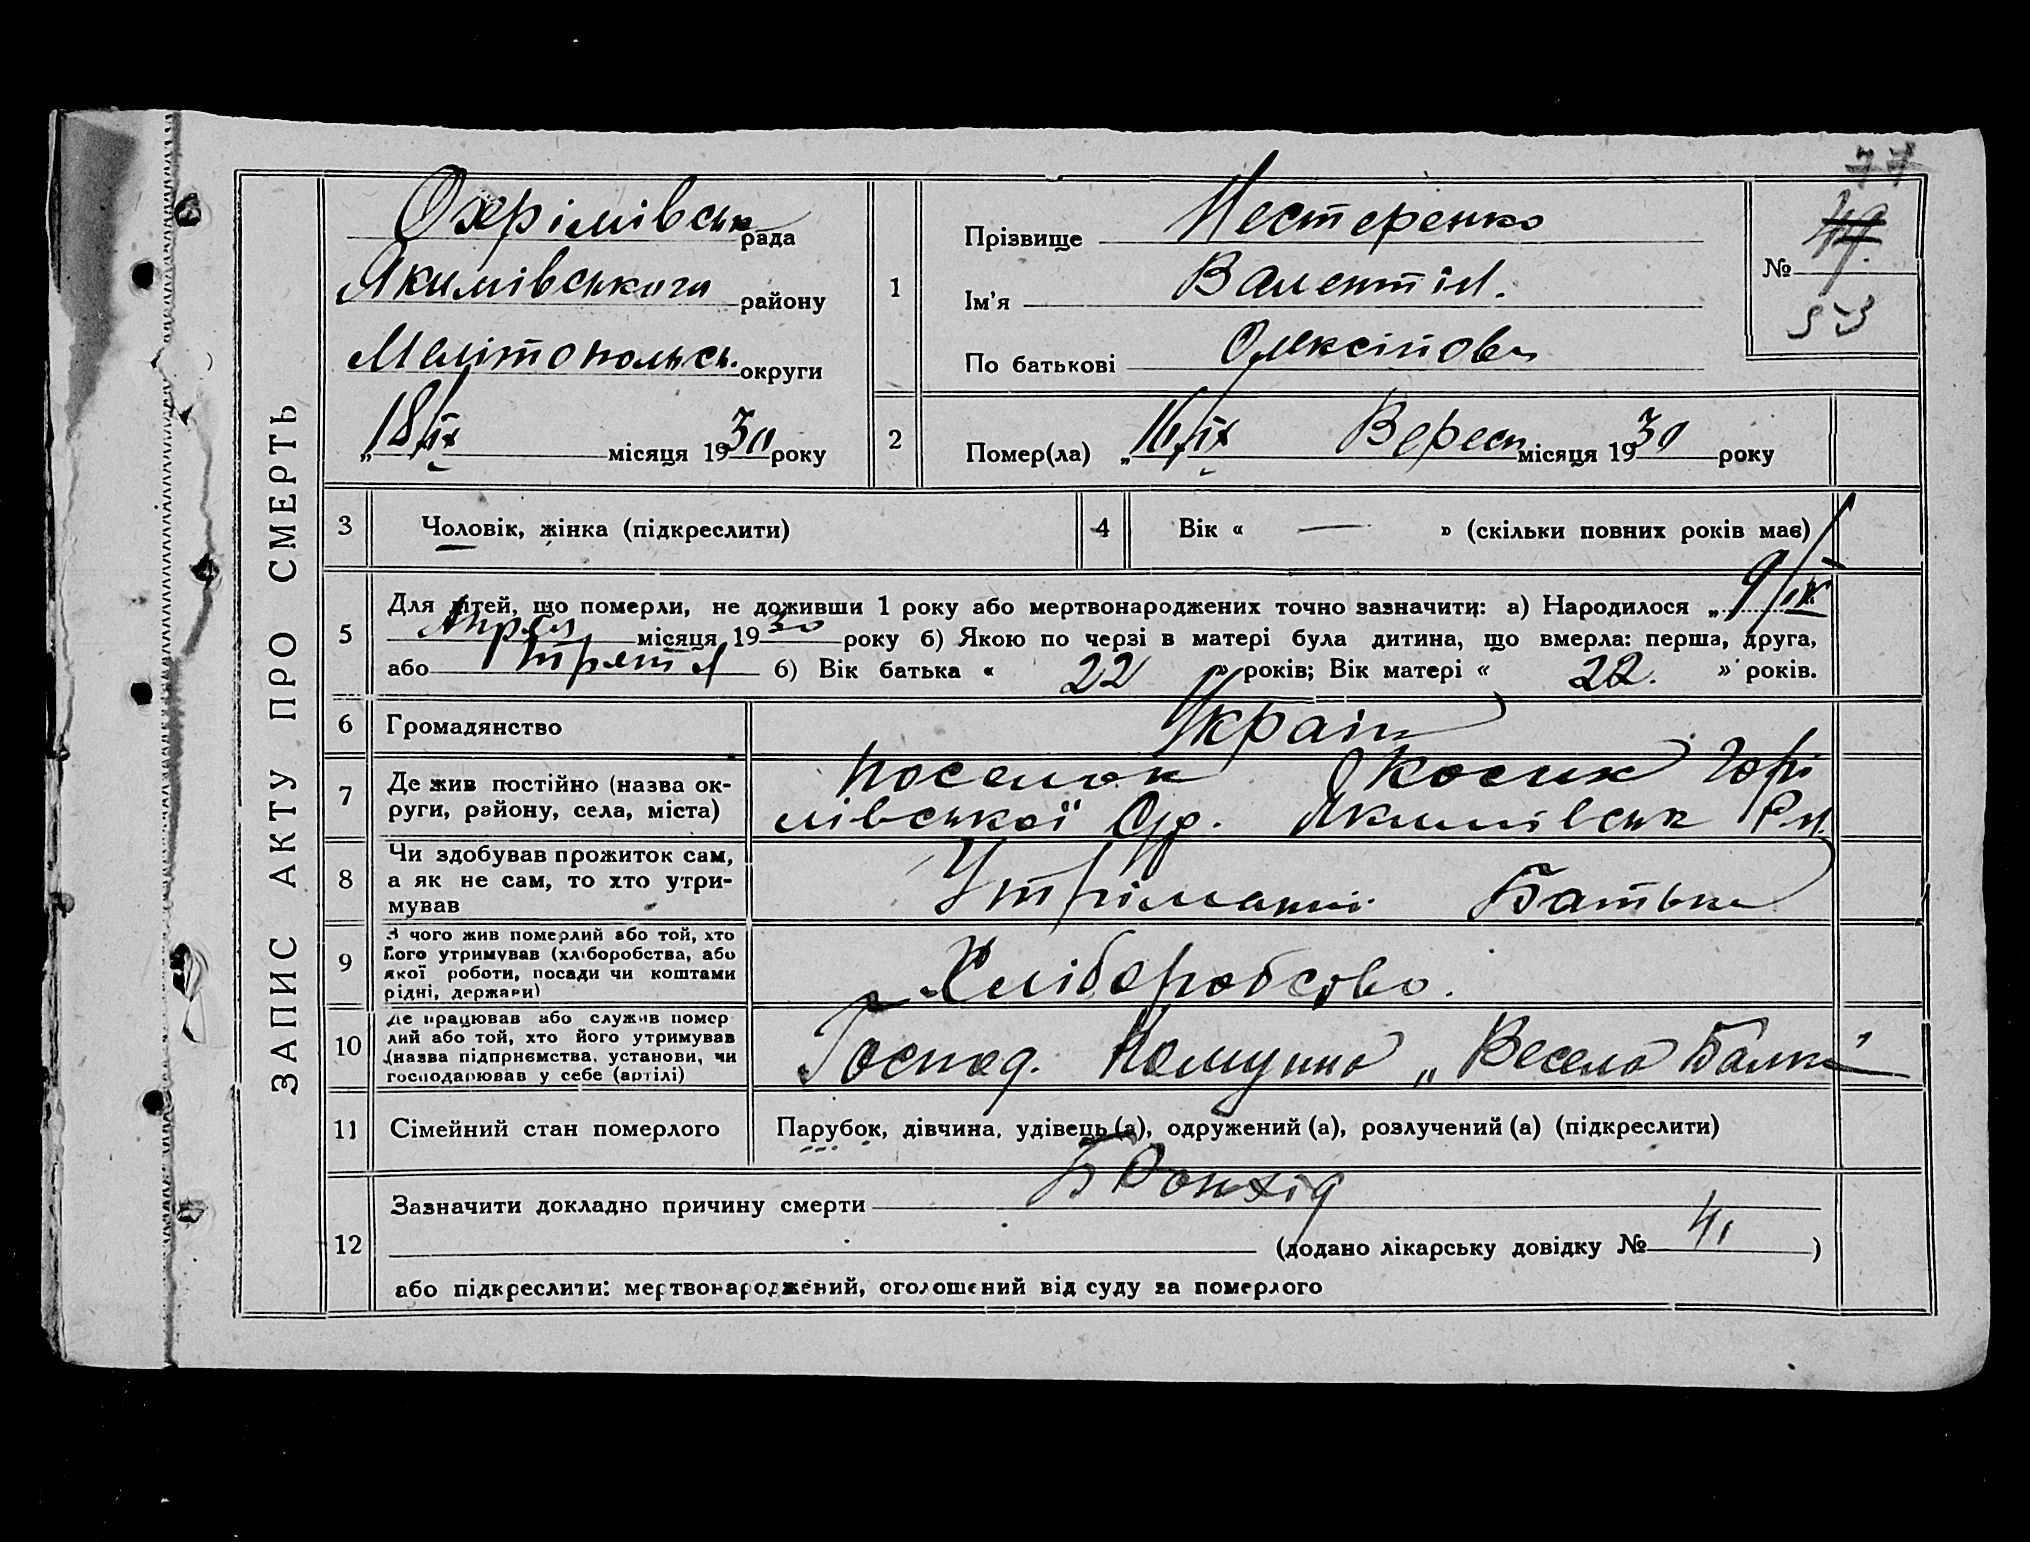 77
ЗАПИС АКТУ ПРО СМЕРТЬ
Охрімівськ рада
Якимівського району
Мелітопольськ. округи
„18/ІХ місяця 1930 року
1
Прізвище Нестеренко
Ім'я Валентін.
По батькові Олексійов
№ 49.
53
2
Помер(ла) „16/ІХ Вересн місяця 1930 року
3 Чоловік, жінка (підкреслити)
4 Вік « — » (скільки повних років має)
5 Для дітей, що померли, не доживши 1 року або мертвонароджених точно зазначити: а) Народилося „ 9/ІV
Апреля місяця 1930 року б) Якою по черзі в матері була дитина, що вмерла: перша, друга,
або третя б) Вік батька « 22 » років; Вік матері « 22. » років.
6 Громадянство Україн
7 Де жив постійно (назва ок-
руги, району, села, міста)
поселок
лівської Якимівськ Рн.
8 Чи здобував прожиток сам,
а як не сам, то хто утри-
мував
Утріманні Батька
9 З чого жив померлий або той, хто
його утримував (хліборобства, або
якої роботи, посади чи коштами
рідні, держави)
Хліборобство.
10 Де працював або служив помер
лий або той, хто його утримував
(назва підприємства, установи, чи
господарював у себе (артілі)
Господ. Комуна „Весела Балка"
11 Сімейний стан померлого Парубок, дівчина, удівець (а), одружений (а), розлучений (а) (підкреслити)
12 Зазначити докладно причину смерти
(додано лікарську довідку № 41 )
або підкреслити: мертвонароджений, оголошений від суду за померлого